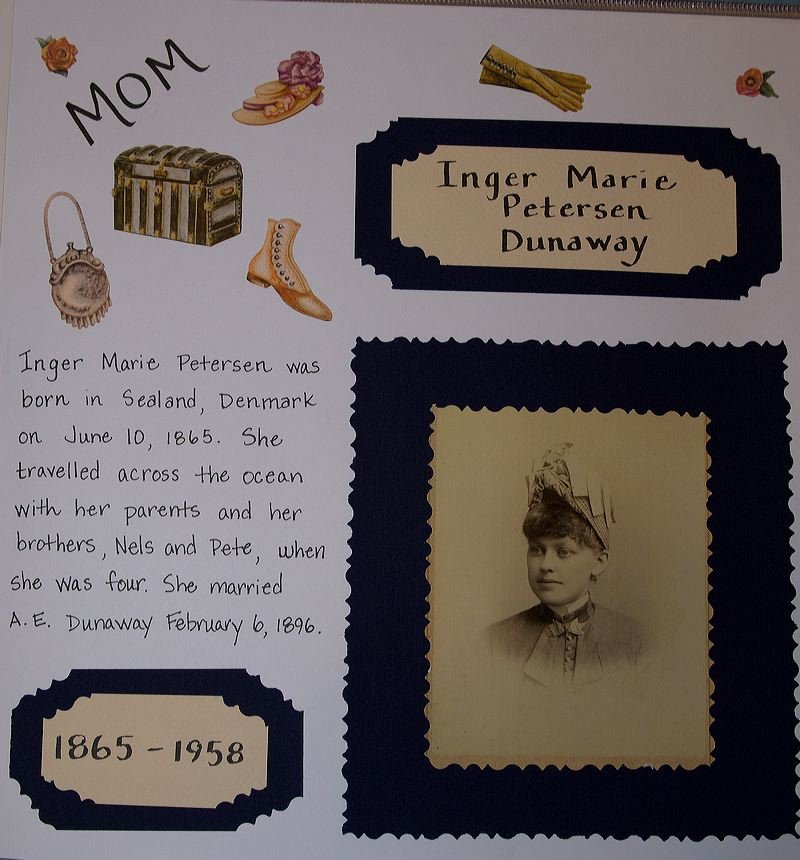 MOM
Inger Marie
Petersen
Dunaway
Inger Marie Petersen was
born in Sealand, Denmark
on June 10, 1865. She
travelled across the ocean
with her parents and her
brothers, Nels and Pete, when
she was four. She married
A.E. Dunaway February 6, 1896.
1865 - 1958